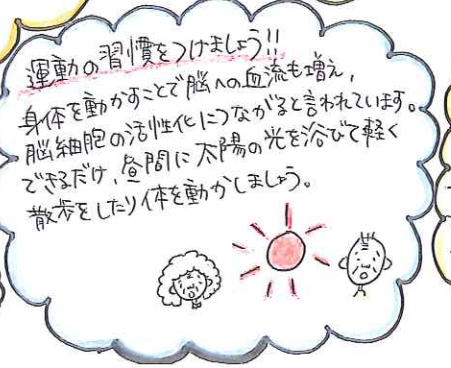 運動の習慣をつけましょう!!
身体を動かすことで脳への血流も増え,
脳細胞の活性化につながると言われています。
できるだけ、昼間に太陽の光を浴びて軽く
散歩をしたり体を動かしましょう。